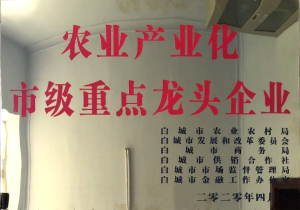 农业产业化
市级重点龙头企业
白城市农业农村局
白城市发展和改革委员会
白城市商务局
白城市供销合作社
白城市市场监督管理局
白城市金融工作办公室
二〇二〇年四月